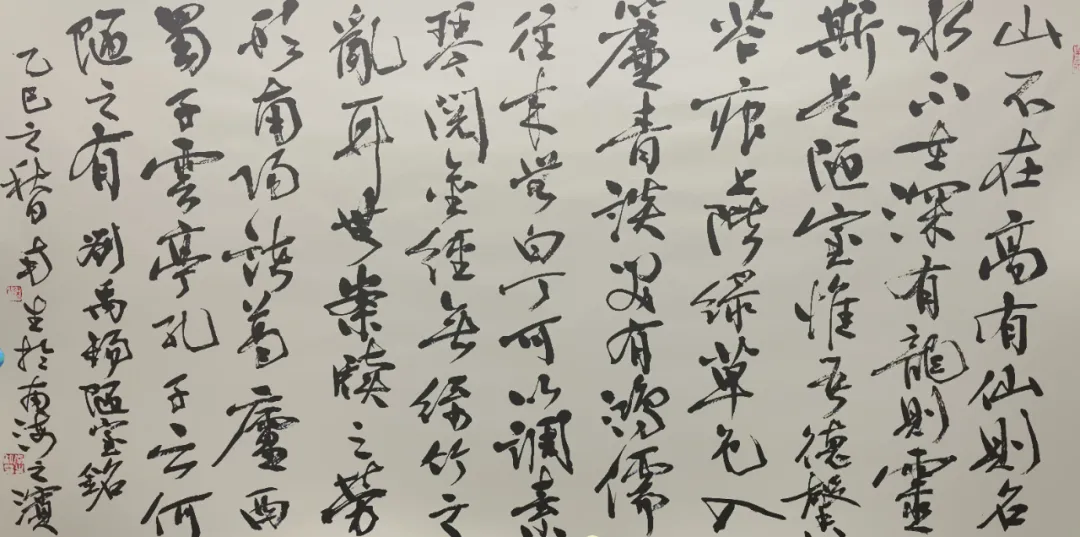 山不在高有仙則名
水不在深有龍則靈
斯是陋室惟吾德馨
苔痕上階綠草色入
簾青談笑有鴻儒
往来無白丁可以調素
琴閱金經無絲竹之
亂耳無案牘之勞
形南陽諸葛廬西
蜀子雲亭孔子云何
陋之有 劉禹錫陋室銘
乙巳之秋日 生於南海之濱